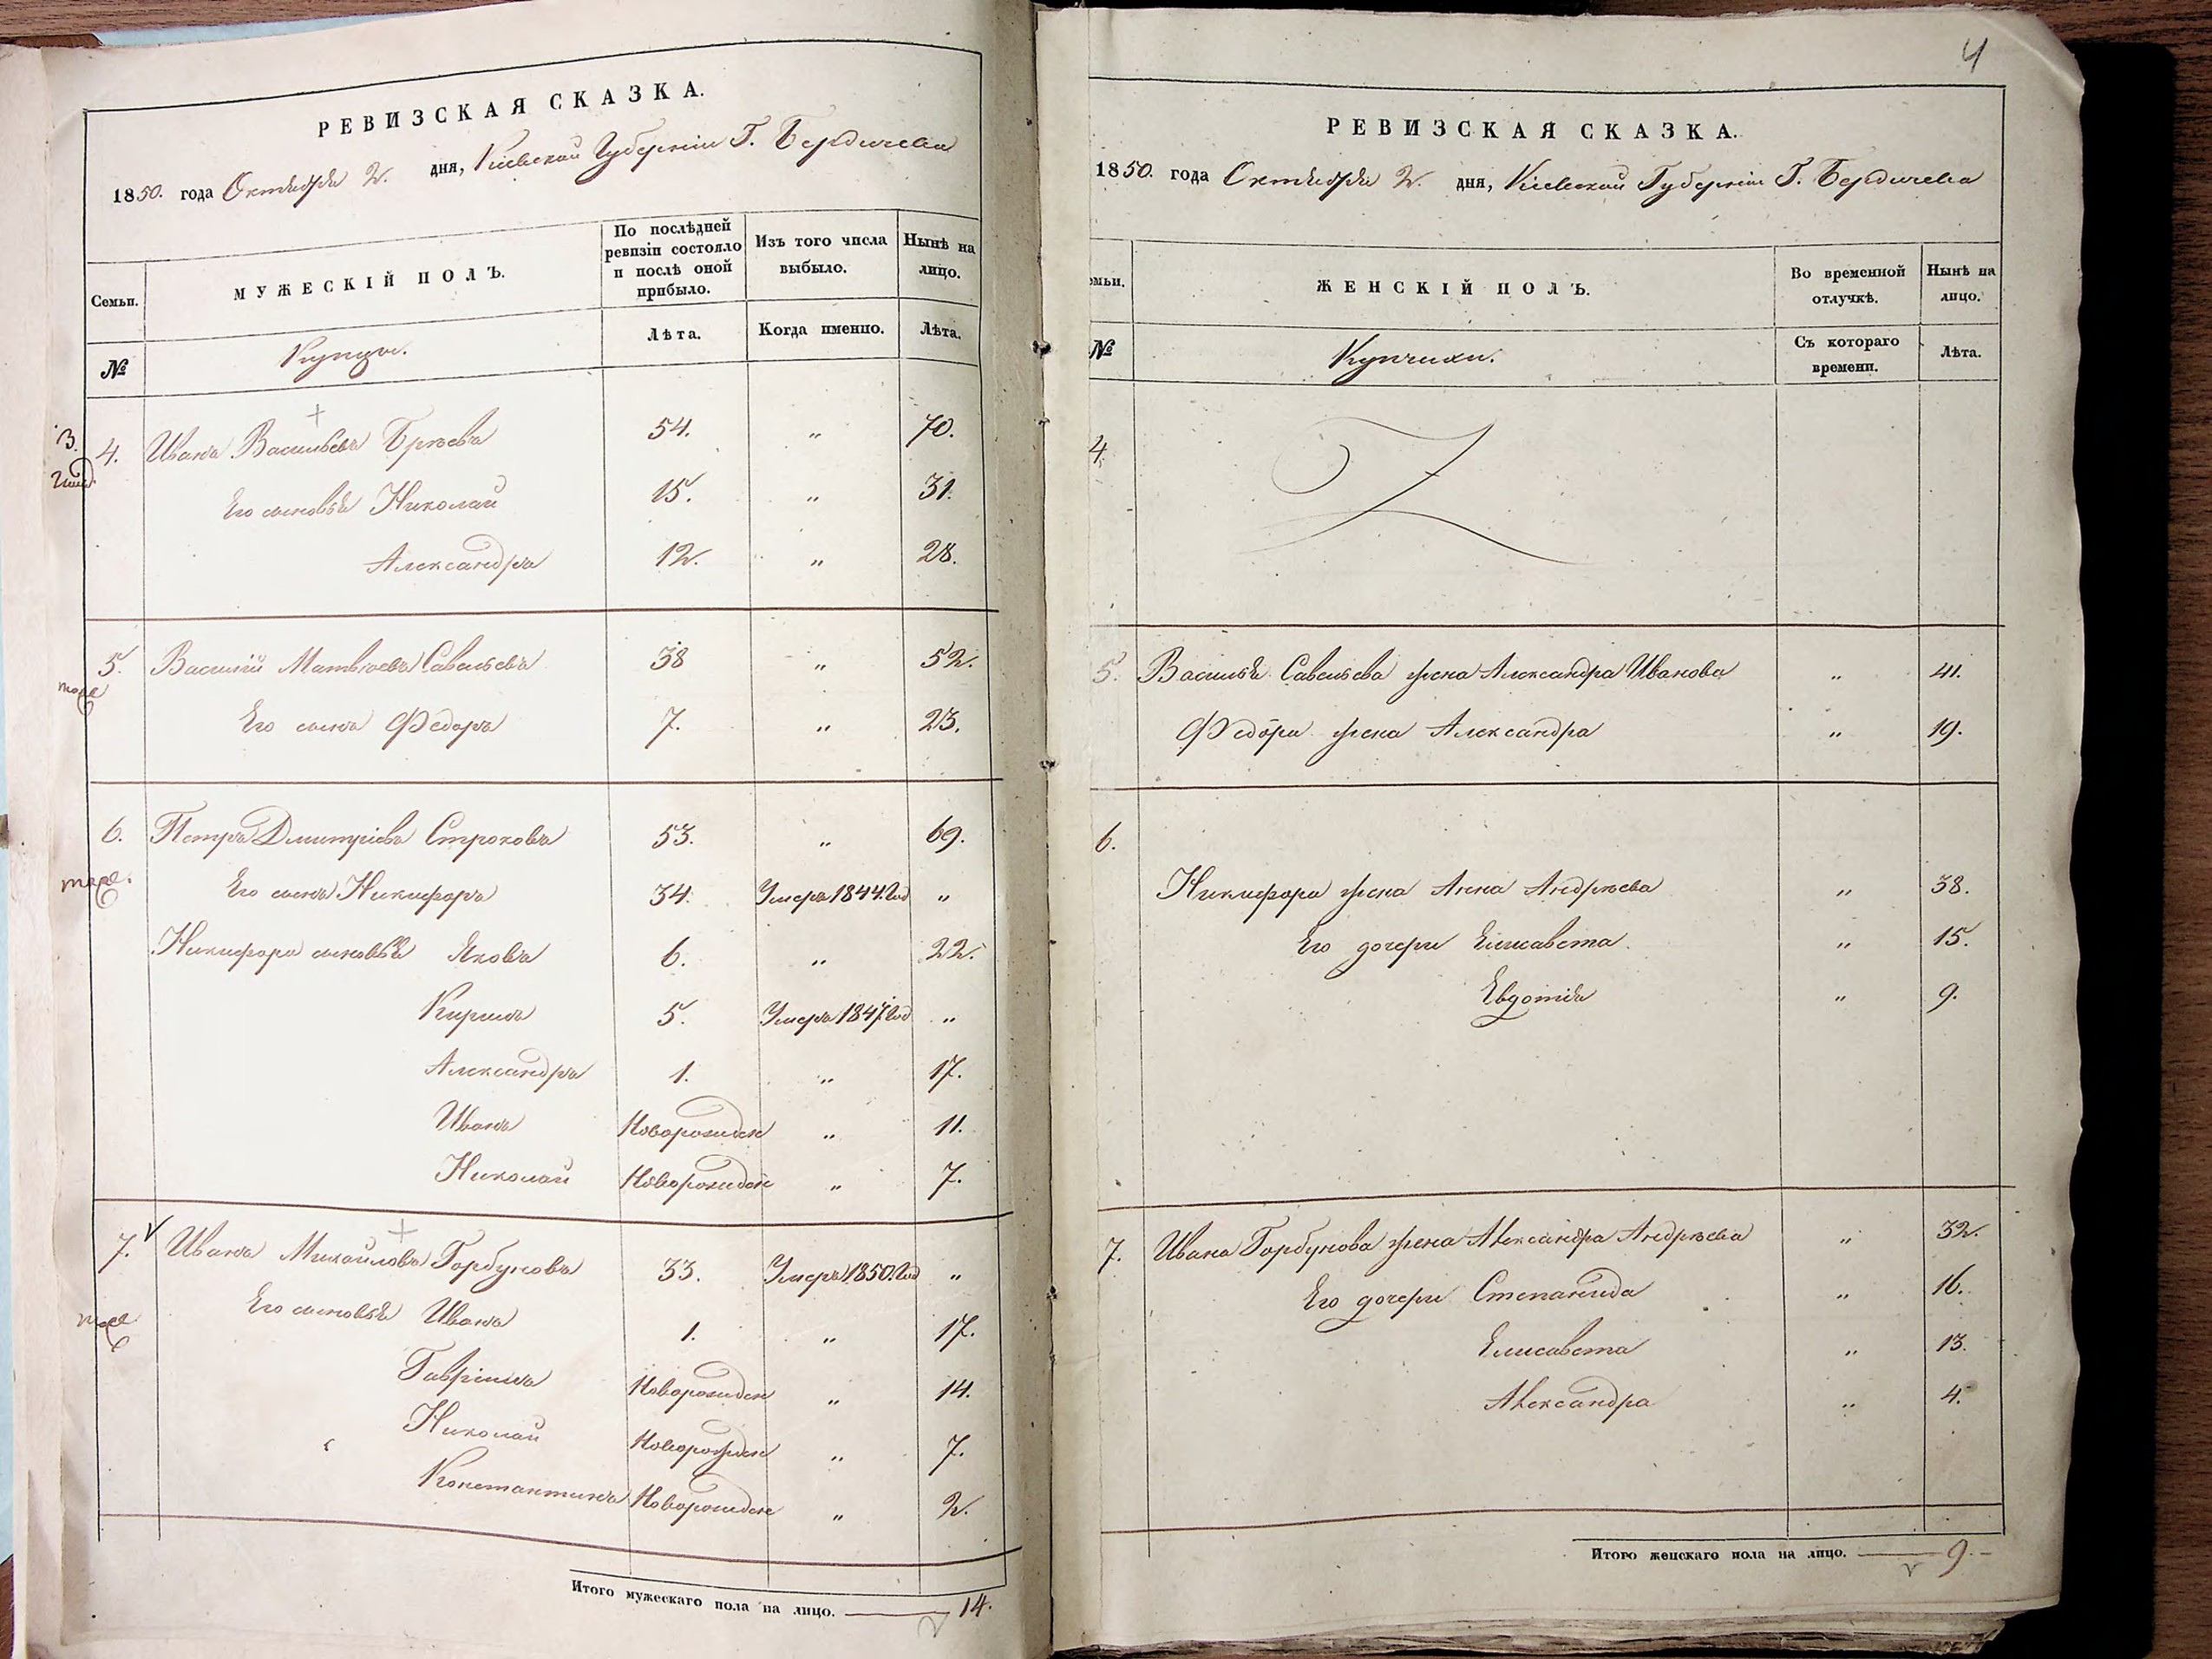 РЕВИЗСКАЯ СКАЗКА.
1850. года Октября 2. дня, Кіевской Губерніи Г. Бердичева
Семьи.
МУЖЕСКІЙ ПОЛЪ.
По послѣдней ревизіи состояло и послѣ оной прибыло.
Изъ того числа выбыло.
Нынѣ на лицо.
№
Купцы.
Лѣта.
Когда именно.
Лѣта.
3. Гильд.
4. Иванъ Васильевъ 54. " 70.
Его сыновья Николай 15. " 31.
Александръ 12. " 28.
5. Василій Матвѣевъ Савельевъ 38 " 52.
тоже
Его сынъ Федоръ 7. " 23.
6. Петръ Дмитріевъ Строковъ 53. " 69.
тоже.
Его сынъ Никифоръ 34. Умеръ 1844. год "
Никифора сыновья Яковъ 6. " 22.
Кирилъ 5. Умеръ 1847. год "
Александръ 1. " 17.
Иванъ Новорожден " 11.
Николай Новорожден " 7.
7. Иванъ Михайловъ Горбуновъ 33. Умеръ 1850. год "
тоже
Его сыновья Иванъ 1. " 17.
Гавріилъ Новорожден " 14.
Николай Новорожден " 7.
Константинъ Новорожден " 2.
Итого мужескаго пола на лицо. 14.
4
РЕВИЗСКАЯ СКАЗКА.
1850. года Октября 2. дня, Кіевской Губерніи Г. Бердичева
емьи.
ЖЕНСКІЙ ПОЛЪ.
Во временной отлучкѣ.
Нынѣ на лицо.
№
Купчихи.
Съ котораго времени.
Лѣта.
4.
5. Василья Савельева жена Александра Иванова " 41.
Федора жена Александра " 19.
6.
Никифора жена Анна Андрѣева " 38.
Его дочери Елисавета " 15.
Евдотія " 9.
7. Ивана Горбунова жена Александра Андрѣева " 32.
Его дочери Степанида " 16.
Елисавета " 13.
Александра " 4.
Итого женскаго пола на лицо. 9.